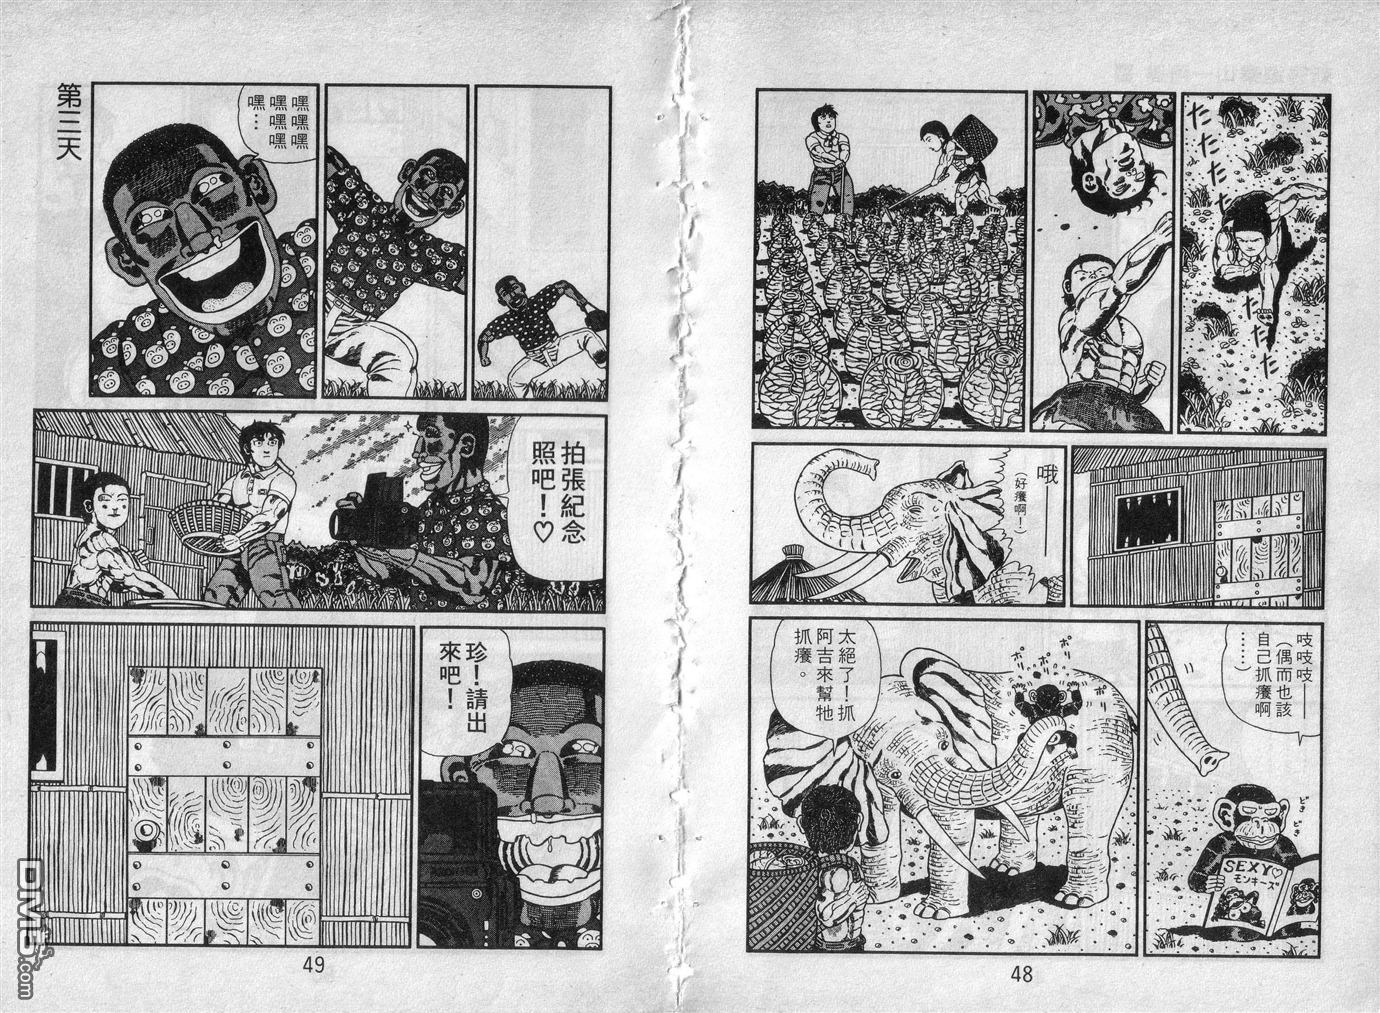 たたたた
たたた
哦——
（好癢啊！）
吱吱吱——
（偶而也該
自己抓癢啊
……）
ポリ
ポリ
ポリ
太絕了！抓
阿吉來幫牠
抓癢。
SEXY♡
モンキーズ
48
第三天
嘿嘿嘿
嘿嘿嘿
嘿…
拍張紀念
照吧！♡
珍！請出
來吧！
49
DM5.com